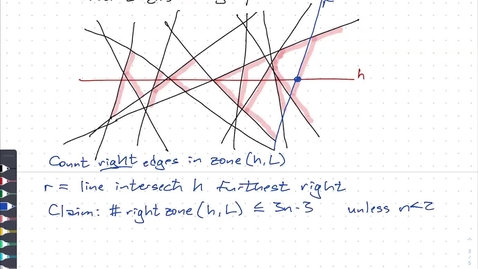 r
h
Count right edges in zone(h,L)
r = line intersect h furthest right
Claim: # right zone(h,L) ≤ 3n-3 unless n<2